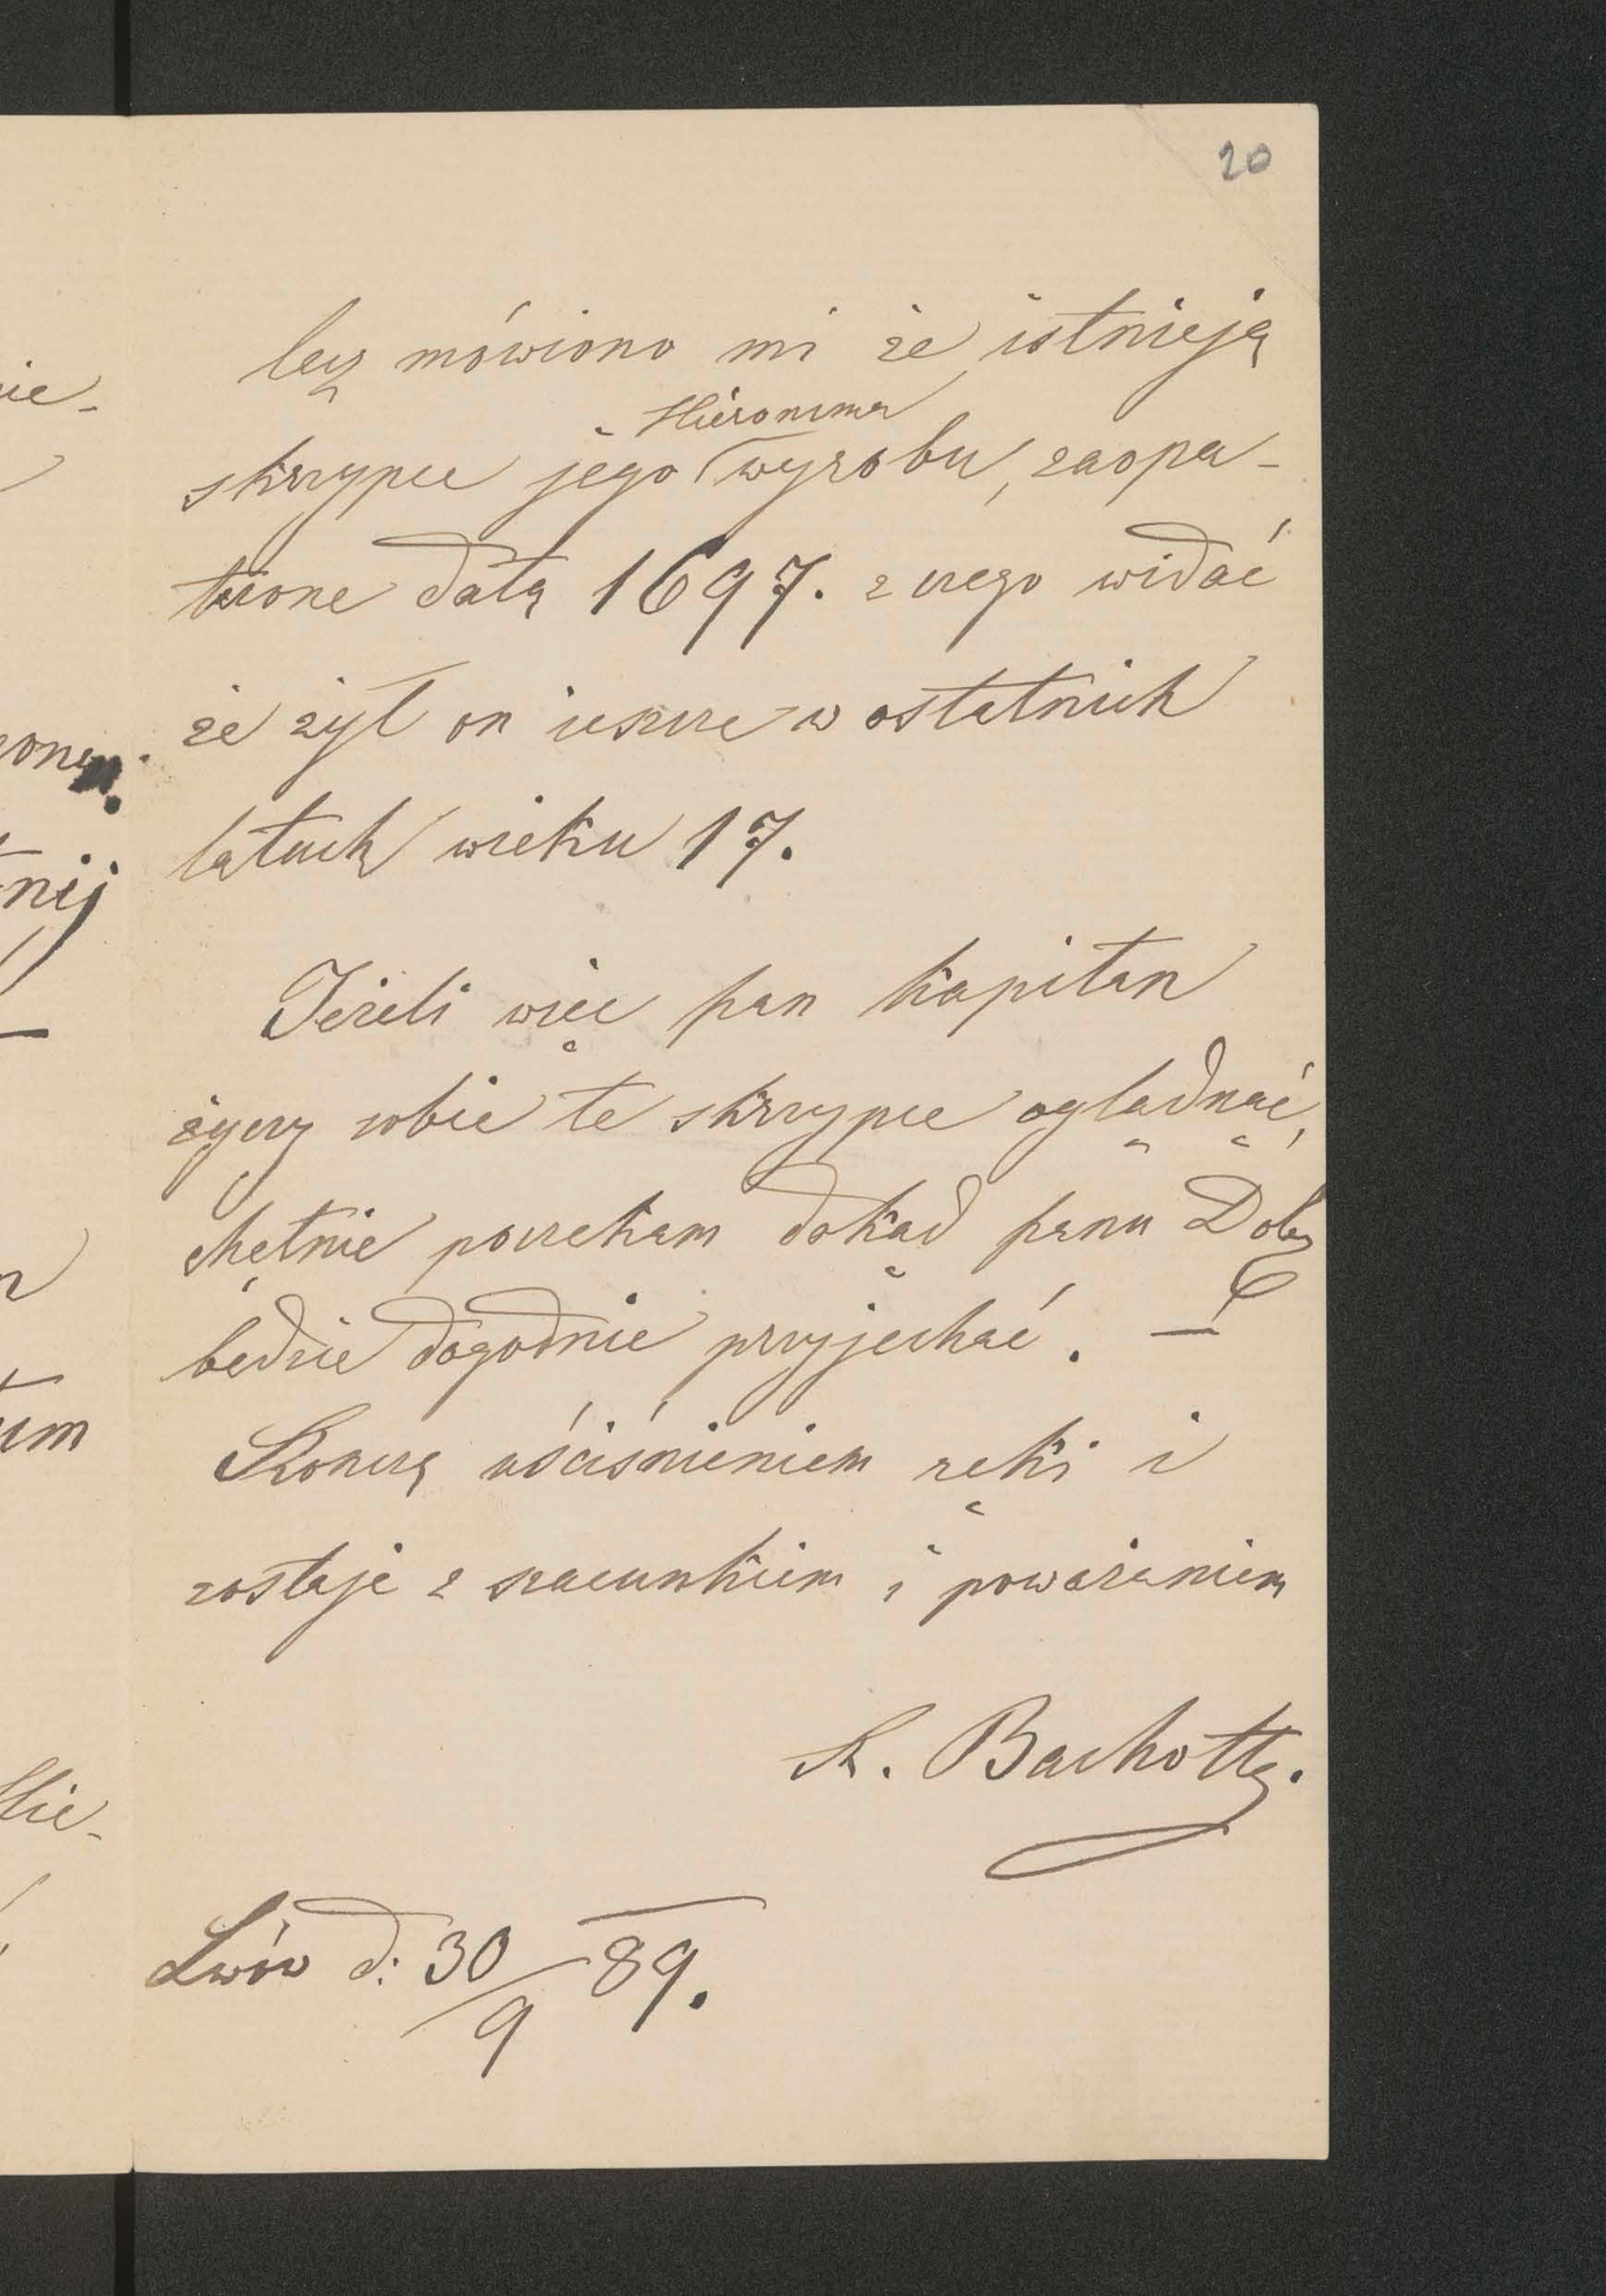 20
lecz mówiono mi że istnieją
Hieronima
skrzypce jego wyrobu, zaopa-
trzone datą 1697. z czego widać
że żył on jeszcze w ostatnich
latach wieku 17.
Jeżeli więc pan kapitan
życzy sobie te skrzypce oglądnąć,
chętnie poczekam dokąd panu Dob.
będzie dogodnie przyjechać. —
Kończę uściśnieniem ręki i
zostaję z szacunkiem i poważaniem
K. Bachotty.
Lwów d: 30/9 89.
nie-
nij
um
Hie-